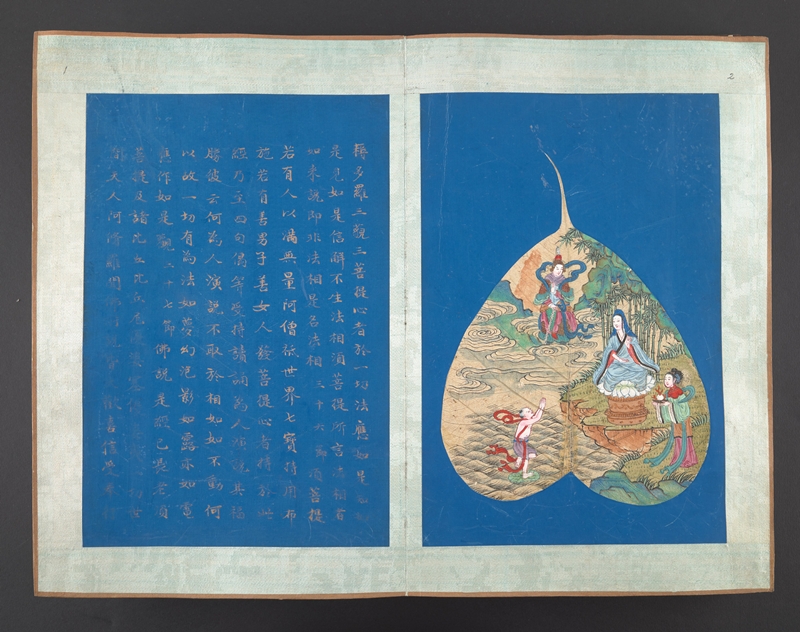 1
2
耨多羅三藐三菩提心者於一切法應如是知
是見如是信解不生法相須菩提所言法相者
如來說即非法相是名法相三十六節須菩提
若有人以滿無量阿僧祇世界七寶持用布
施若有善男子善女人發菩提心者持於此
經乃至四句偈等受持讀誦為人演說其福
勝彼云何為人演說不取於相如如不動何
以故一切有為法如夢幻泡影如露亦如電
應作如是觀三十七節佛說是經已長老須
菩提及諸比丘比丘尼優婆塞優婆夷一切世
間天人阿脩羅聞佛所說皆大歡喜信受奉行